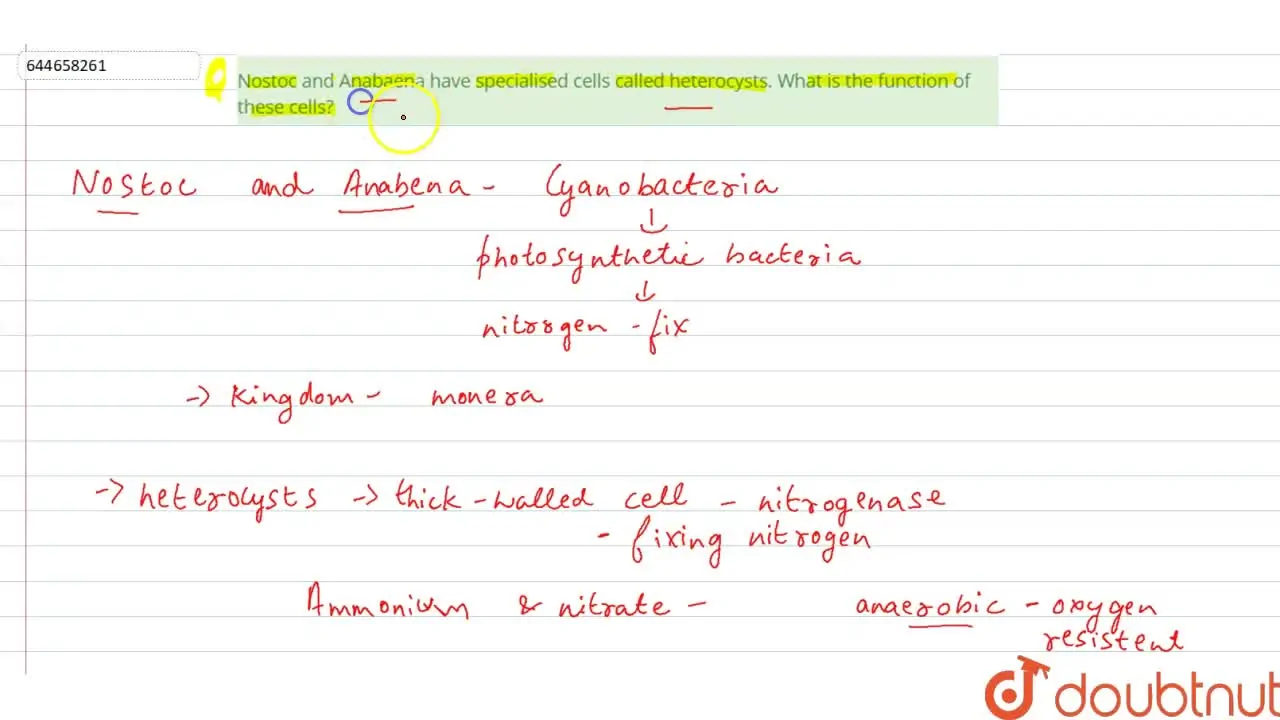 644658261
Nostoc and Anabaena have specialised cells called heterocysts. What is the function of
these cells?
Nostoc and Anabena - Cyanobacteria
↓
photosynthetic bacteria
↓
nitrogen - fix
-> Kingdom - monera
-> heterocysts -> thick-walled cell - nitrogenase
- fixing nitrogen
Ammonium & nitrate - anaerobic - oxygen
resistent
doubtnut